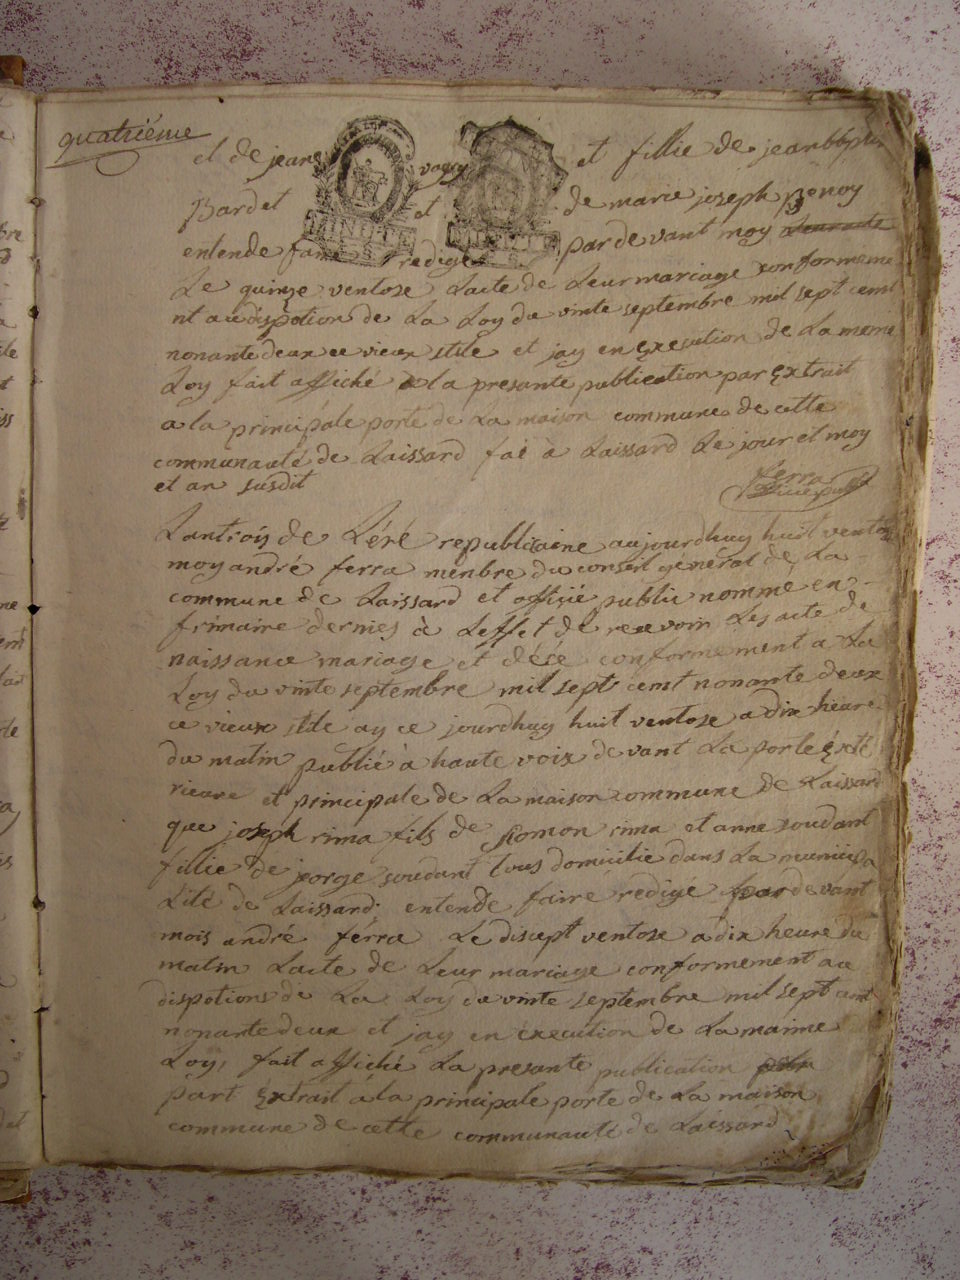 quatriéme
et de jeane vagy et fillie de jean bbptis
Bardet et de marie joseph penoy
entende faire redige par devant moy
Le quinze ventose Lacte de Leur mariage conformeme
nt au dispotion de La Loy du vinte septembre mil sept cent
nonante deux ce vieux stile et jay en execution de La meme
Loy fait affiché la presante publication par extrait
a la principale porte de La maison commune de cette
communauté de Laissard fai à Laissard Le jour et moy
et an susdit
ferra
officie public
Lantrois de Léré republicaine aujourdhuy huit ventos
moy andré ferra menbre du conseil general de La
commune de Laissard et officié public nomme en
frimaire dernies à Leffet de recevoir Les acte de
naissance mariage et décé conformement a La
Loy du vinte septembre mil sept cent nonante deux
ce vieux stile ay ce jourdhuy huit ventose a dix heure
du matin publié à haute voix devant La porte éxté
rieure et principale de La maison commune de Laissard
que joseph rima fils de Romon rima et anne soudant
fillie de jorge soudant tous domicilie dans La municipa
Lité de Laissard entende faire redigé par devant
mois andré ferra Le disept ventose a dix heure du
matin Lacte de Leur mariage conformement au
dispotions de La Loy du vinte septembre mil sept cent
nonante deux et jay en execution de La maime
Loy, fait affiché La presante publication
part extrait à la principale porte de La maison
commune de cette communauté de Laissard